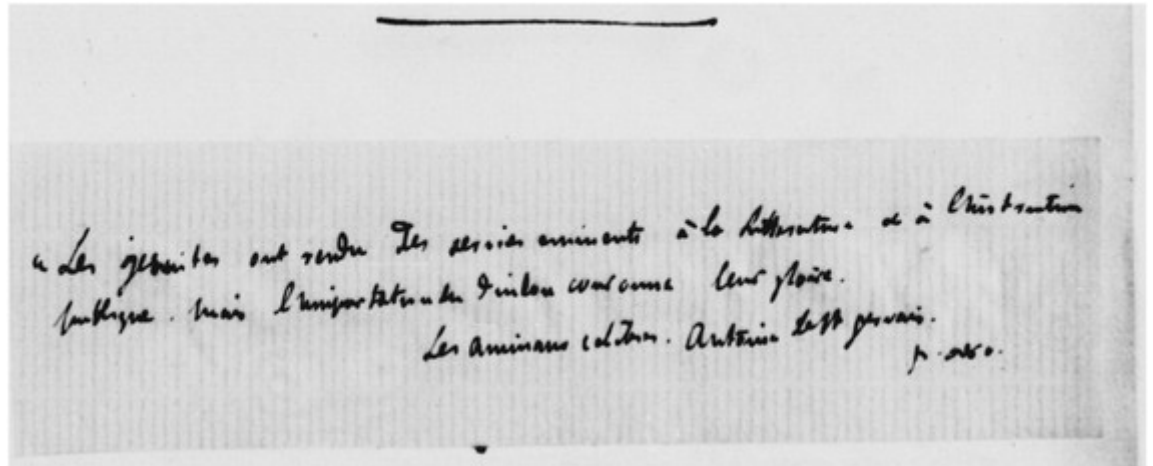 « Les gesuites ont rendu des services eminents à la litterature et à l'instruction
publique. mais l'importation du dindon couronne leur gloire.
Les animaux celebres. Antoine gervais.
p.